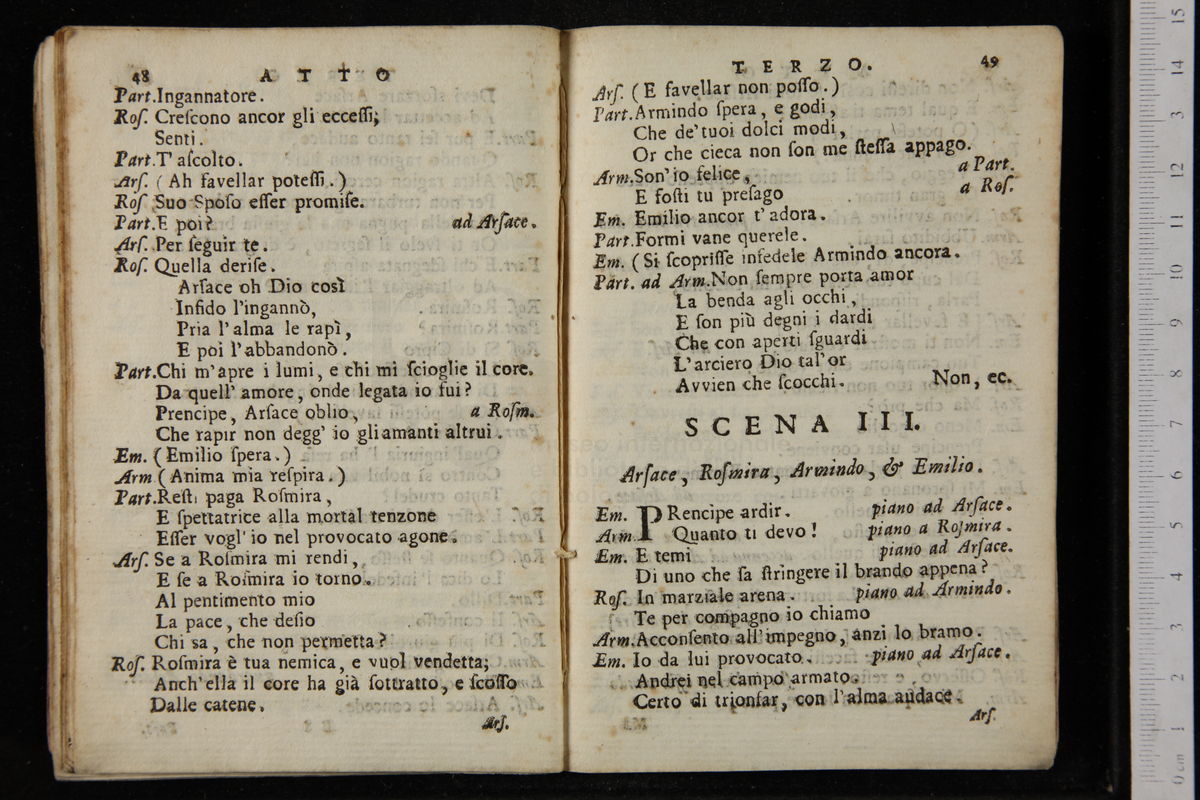 48 ATTO
Part.Ingannatore.
Roſ. Creſcono ancor gli ecceſſi;
Senti.
Part.T' aſcolto.
Arſ. (Ah favellar poteſſi.)
Roſ Suo Spoſo eſſer promiſe.
Part.E poi? ad Arſace.
Arſ. Per ſeguir te.
Roſ. Quella deriſe.
Arſace oh Dio così
Infido l'ingannò,
Pria l'alma le rapì,
E poi l'abbandonò.
Part.Chi m'apre i lumi, e chi mi ſcioglie il core.
Da quell' amore, onde legata io fui?
Prencipe, Arſace oblio, a Roſm.
Che rapir non degg' io gli amanti altrui.
Em. (Emilio ſpera.)
Arm (Anima mia reſpira.)
Part.Reſti paga Roſmira,
E ſpettatrice alla mortal tenzone
Eſſer vogl' io nel provocato agone.
Arſ. Se a Roſmira mi rendi,
E ſe a Roſmira io torno.
Al pentimento mio
La pace, che deſio
Chi sa, che non permetta?
Roſ. Roſmira è tua nemica, e vuol vendetta;
Anch'ella il core ha già ſottratto, e ſcoſſo
Dalle catene.
Arſ.
TERZO. 49
Arſ. (E favellar non poſſo.)
Part.Armindo ſpera, e godi,
Che de'tuoi dolci modi,
Or che cieca non ſon me ſteſſa appago.
Arm.Son'io felice, a Part.
E foſti tu preſago a Roſ.
Em. Emilio ancor t'adora.
Part.Formi vane querele.
Em. (Si ſcopriſſe infedele Armindo ancora.
Part. ad Arm.Non ſempre porta amor
La benda agli occhi,
E ſon più degni i dardi
Che con aperti ſguardi
L'arciero Dio tal'or
Avvien che ſcocchi. Non, ec.
SCENA III.
Arſace, Roſmira, Armindo, & Emilio.
Em. PRencipe ardir. piano ad Arſace.
Arm. Quanto ti devo! piano a Roſmira.
Em. E temi piano ad Arſace.
Di uno che ſa ſtringere il brando appena?
Roſ. In marziale arena. piano ad Armindo.
Te per compagno io chiamo
Arm.Acconſento all'impegno, anzi lo bramo.
Em. Io da lui provocato. piano ad Arſace.
Andrei nel campo armato.
Certo di trionfar, con l'alma audace.
Arſ.